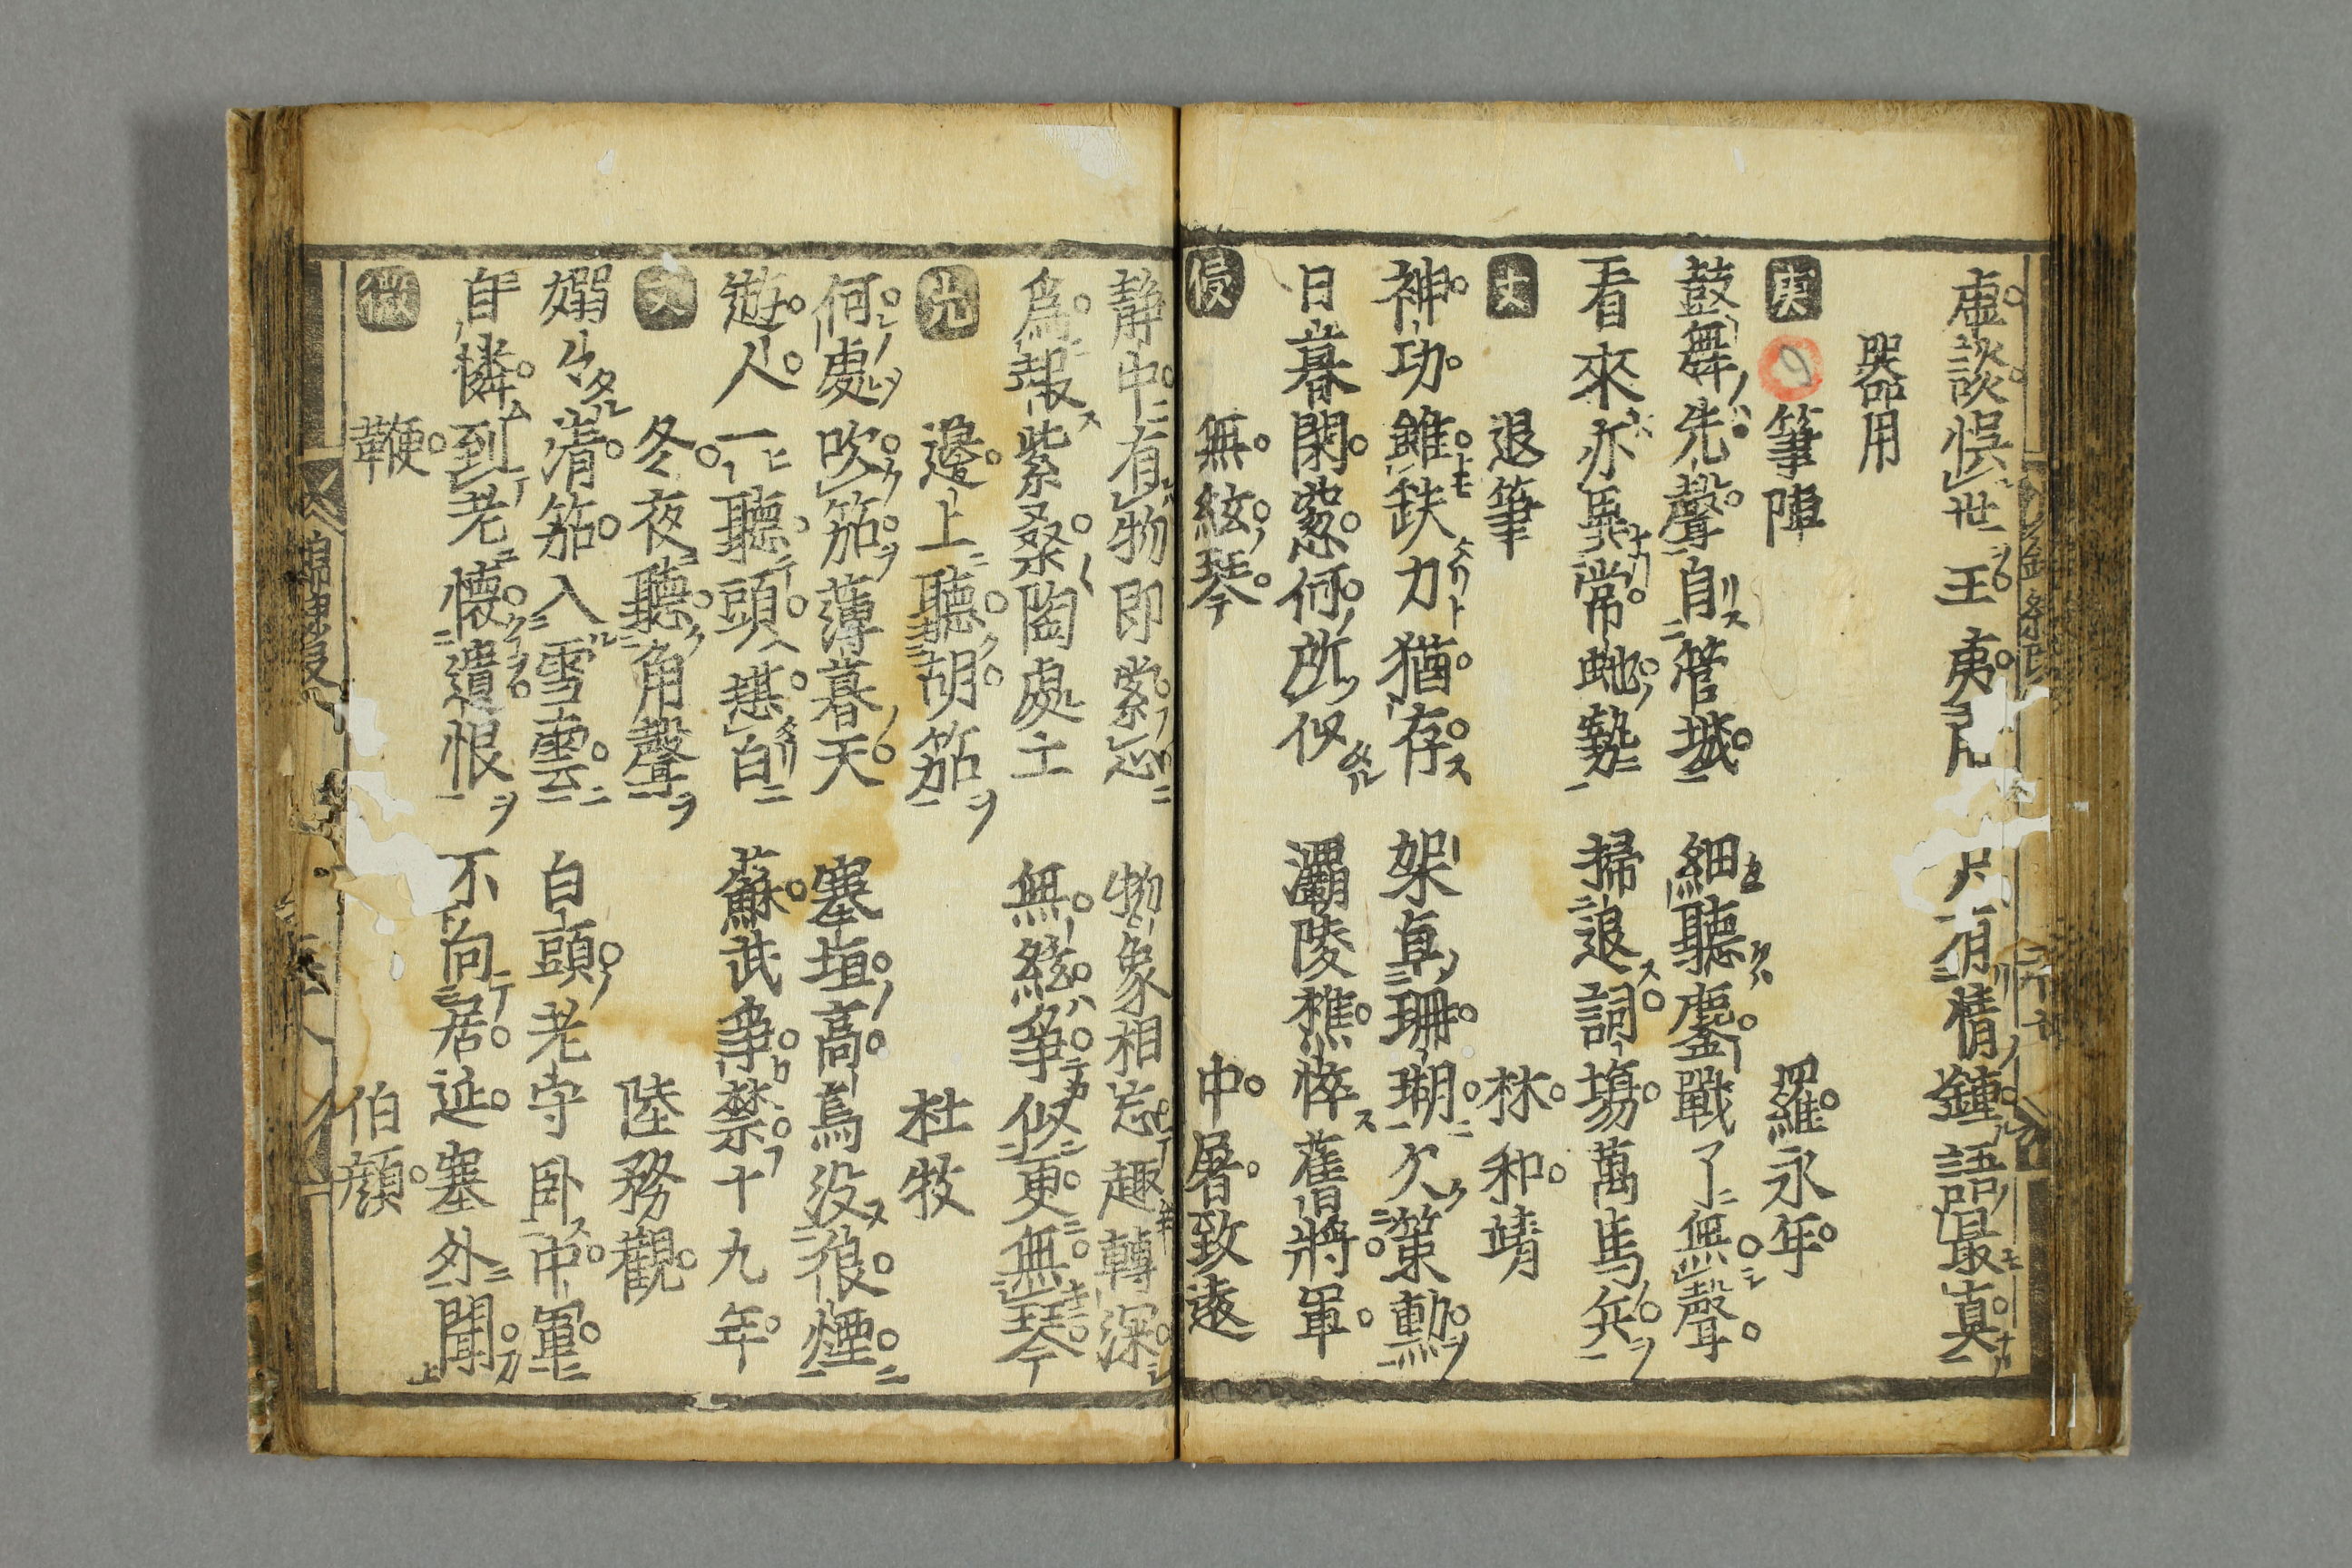 虚談悞世王夷 有情鍾語最真
器用
庚 筆陣 羅永年
鼓舞先聲自管城 細聽鏖戰了無聲
看來亦異常虵勢 掃退詞塲萬馬兵
丈 退筆 林和靖
神功雖缺力猶存 架卓珊瑚欠策勲
日暮閑窓何所似 灞陵憔悴舊將軍
侵 無絃琴 中屠致遠
静中有物即索忘 物象相忘趣轉深
爲報紫桑陶處士 無絃爭似更無琴
先 邊上聽胡笳 杜牧
何處吹笳薄暮天 塞垣高鳥没狼煙
遊人一聽頭堪白 蘇武爭禁十九年
文 冬夜聽角聲 陸務觀
嫋々清笳入雪雲 白頭老守卧中軍
自憐到老懐遺恨 不向居延塞外聞
微 鞭 伯顔